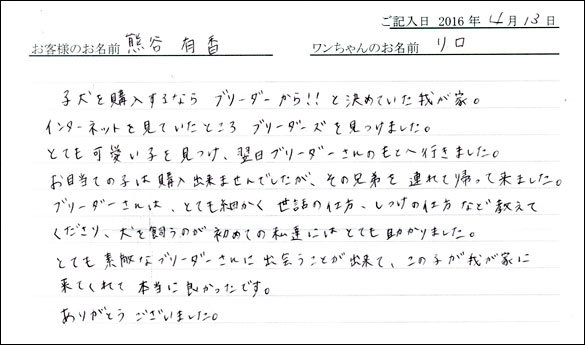 ご記入日 2016 年 4 月 13 日
お客様のお名前 熊谷 有香 ワンちゃんのお名前 リロ
子犬を購入するなら ブリーダーから!! と決めていた我が家。
インターネットを見ていたところ ブリーダーズを見つけました。
とても可愛い子を見つけ、翌日ブリーダーさんのもとへ行きました。
お目当ての子は購入出来ませんでしたが、その兄弟を連れて帰って来ました。
ブリーダーさんは、とても細かく 世話の仕方、しつけの仕方など教えて
くださり、犬を飼うのが初めての私達にはとても助かりました。
とても素敵なブリーダーさんに出会うことが出来て、この子が我が家に
来てくれて本当に良かったです。
ありがとうございました。